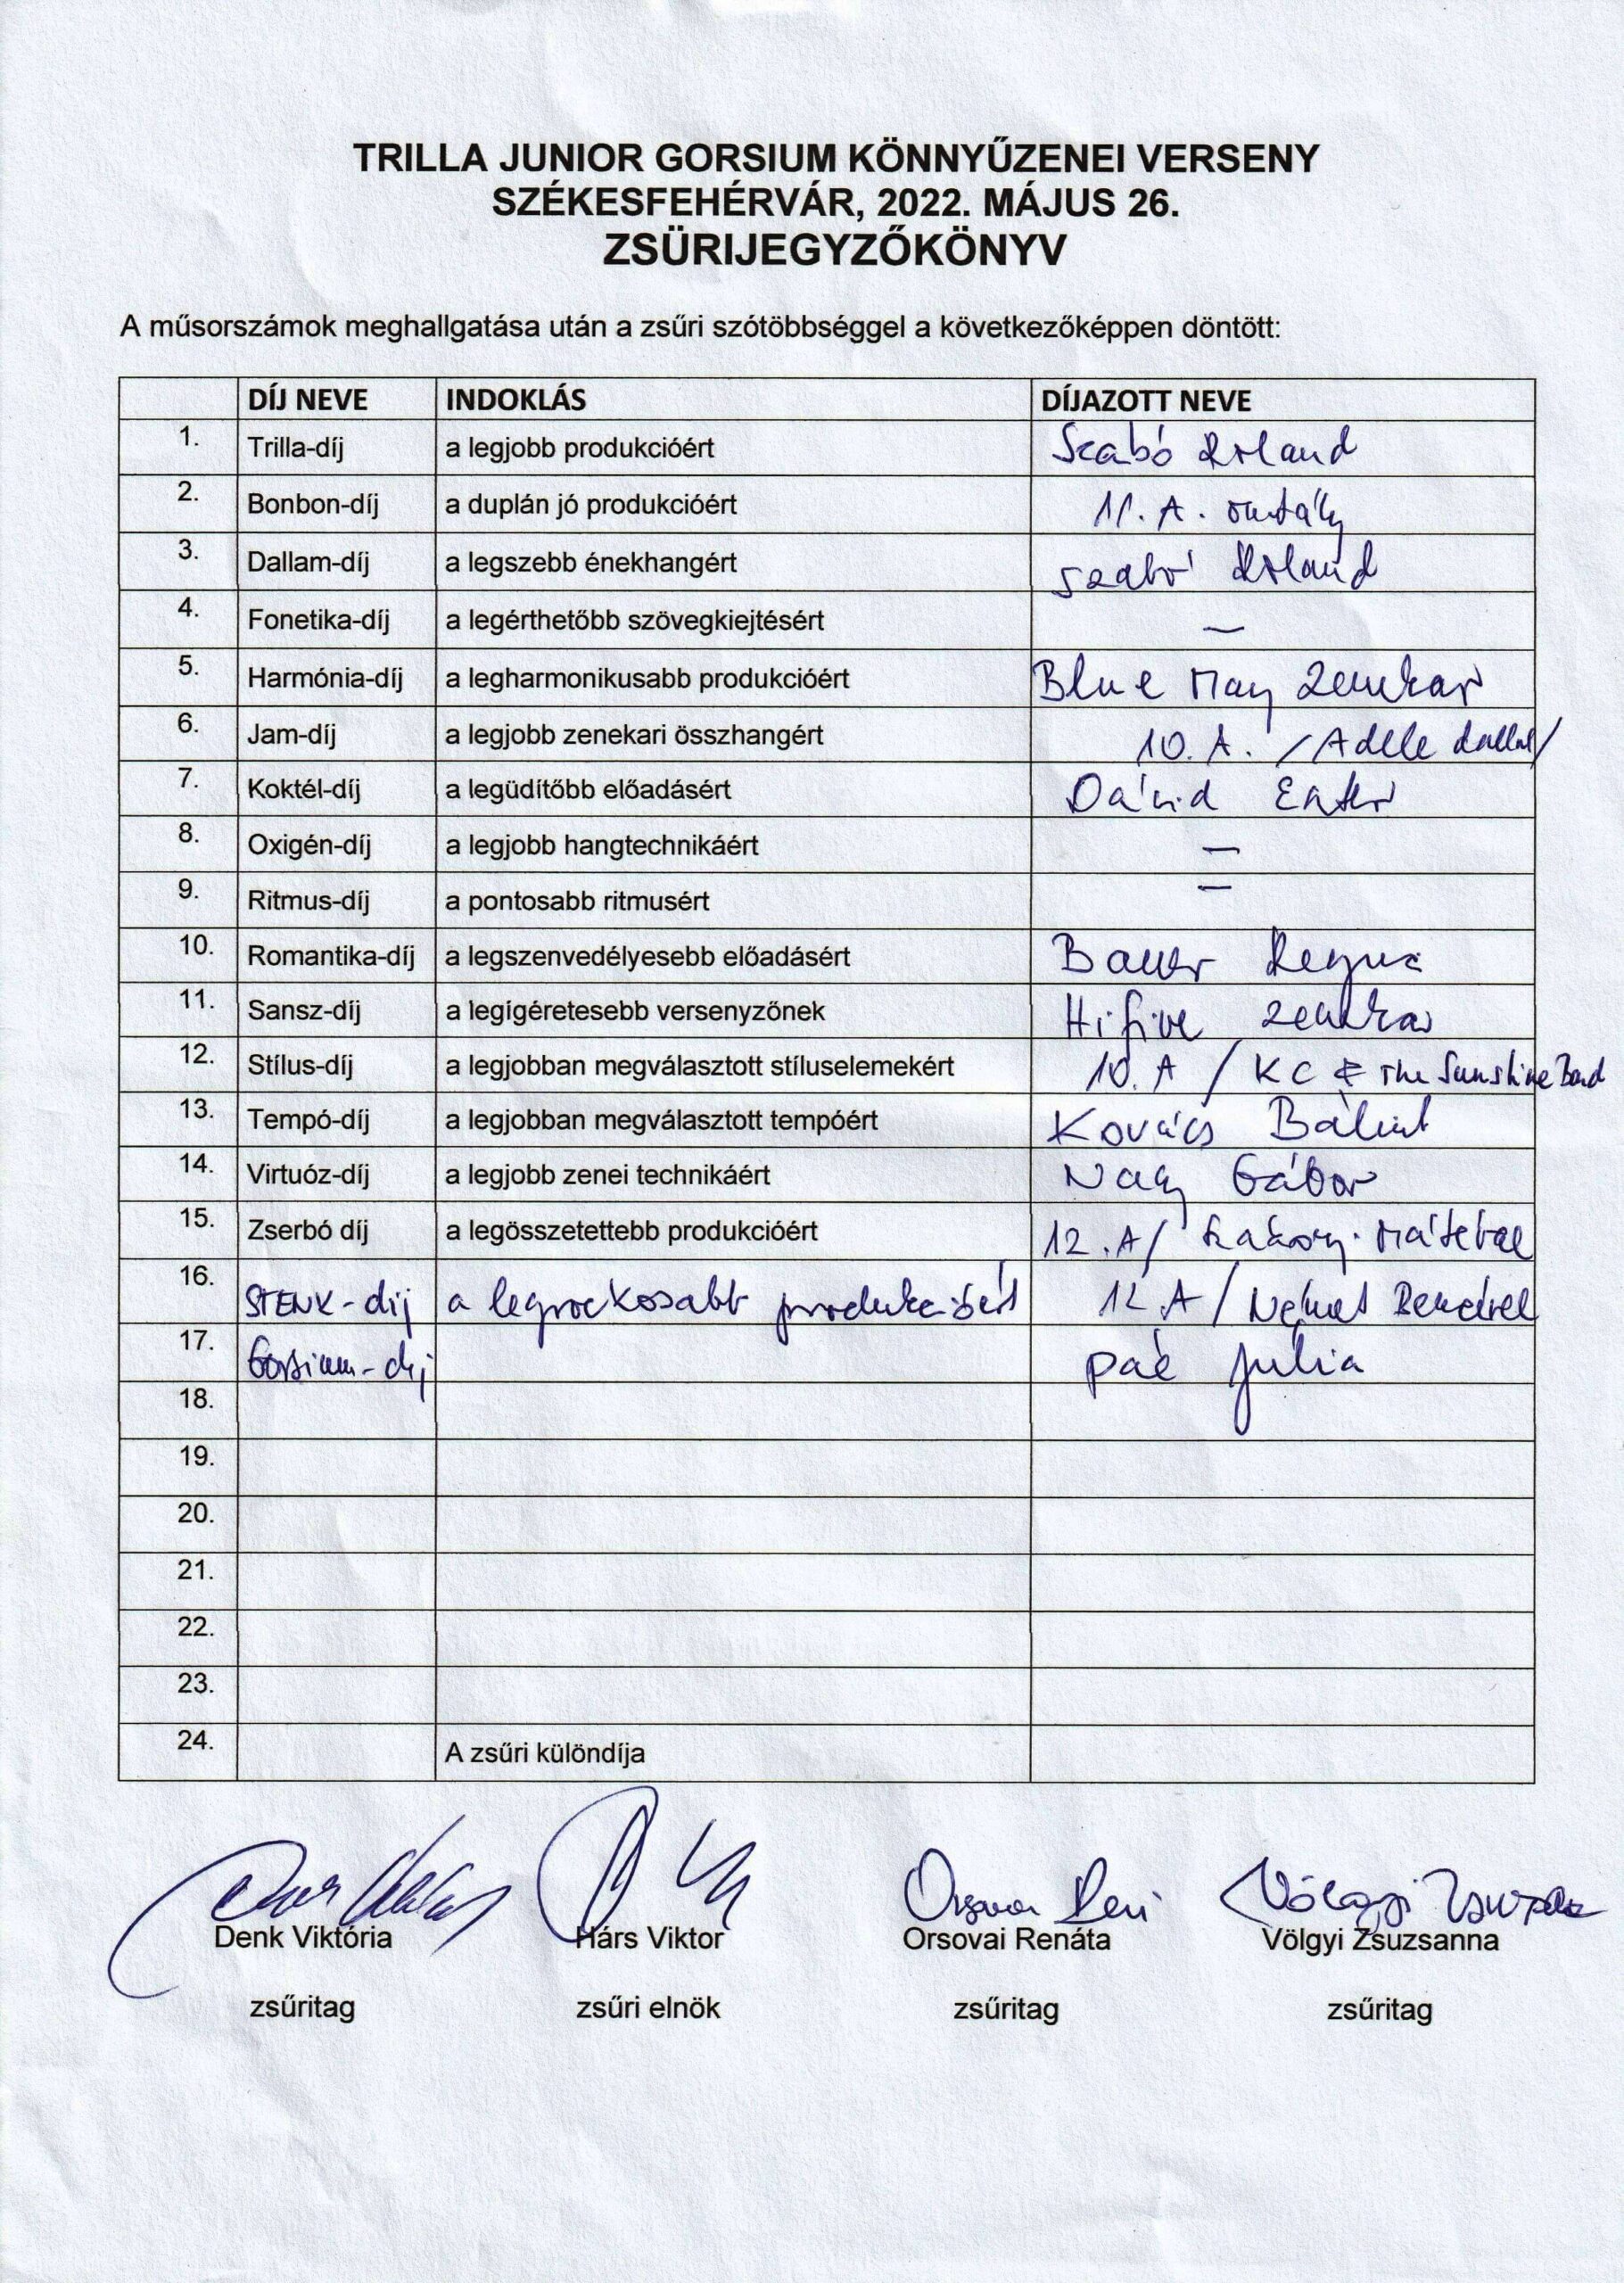 TRILLA JUNIOR GORSIUM KÖNNYŰZENEI VERSENY
SZÉKESFEHÉRVÁR, 2022. MÁJUS 26.
ZSÜRIJEGYZŐKÖNYV
A műsorszámok meghallgatása után a zsűri szótöbbséggel a következőképpen döntött:
DÍJ NEVE INDOKLÁS DÍJAZOTT NEVE
1. Trilla-díj a legjobb produkcióért Szabó Roland
2. Bonbon-díj a duplán jó produkcióért 11. A. osztály
3. Dallam-díj a legszebb énekhangért Szabó Roland
4. Fonetika-díj a legérthetőbb szövegkiejtésért —
5. Harmónia-díj a legharmonikusabb produkcióért Blue May zenekar
6. Jam-díj a legjobb zenekari összhangért 10. A. /Adele dallal/
7. Koktél-díj a legüdítőbb előadásért Dávid Eszter
8. Oxigén-díj a legjobb hangtechnikáért —
9. Ritmus-díj a pontosabb ritmusért —
10. Romantika-díj a legszenvedélyesebb előadásért Bauer Regina
11. Sansz-díj a legígéretesebb versenyzőnek Hifive zenekar
12. Stílus-díj a legjobban megválasztott stíluselemekért 10. A / KC & The Sunshine Band
13. Tempó-díj a legjobban megválasztott tempóért Kovács Bálint
14. Virtuóz-díj a legjobb zenei technikáért Nagy Gábor
15. Zserbó díj a legösszetettebb produkcióért 12.A/ Mátéval
16. STENK-díj a legrockosabb produkcióért 12 A/ Német Bencével
17. Gorsium-díj Júlia
18.
19.
20.
21.
22.
23.
24. A zsűri különdíja
Orsovai Reni Völgyi Zsuzsanna
Denk Viktória Hárs Viktor Orsovai Renáta Völgyi Zsuzsanna
zsűritag zsűri elnök zsűritag zsűritag